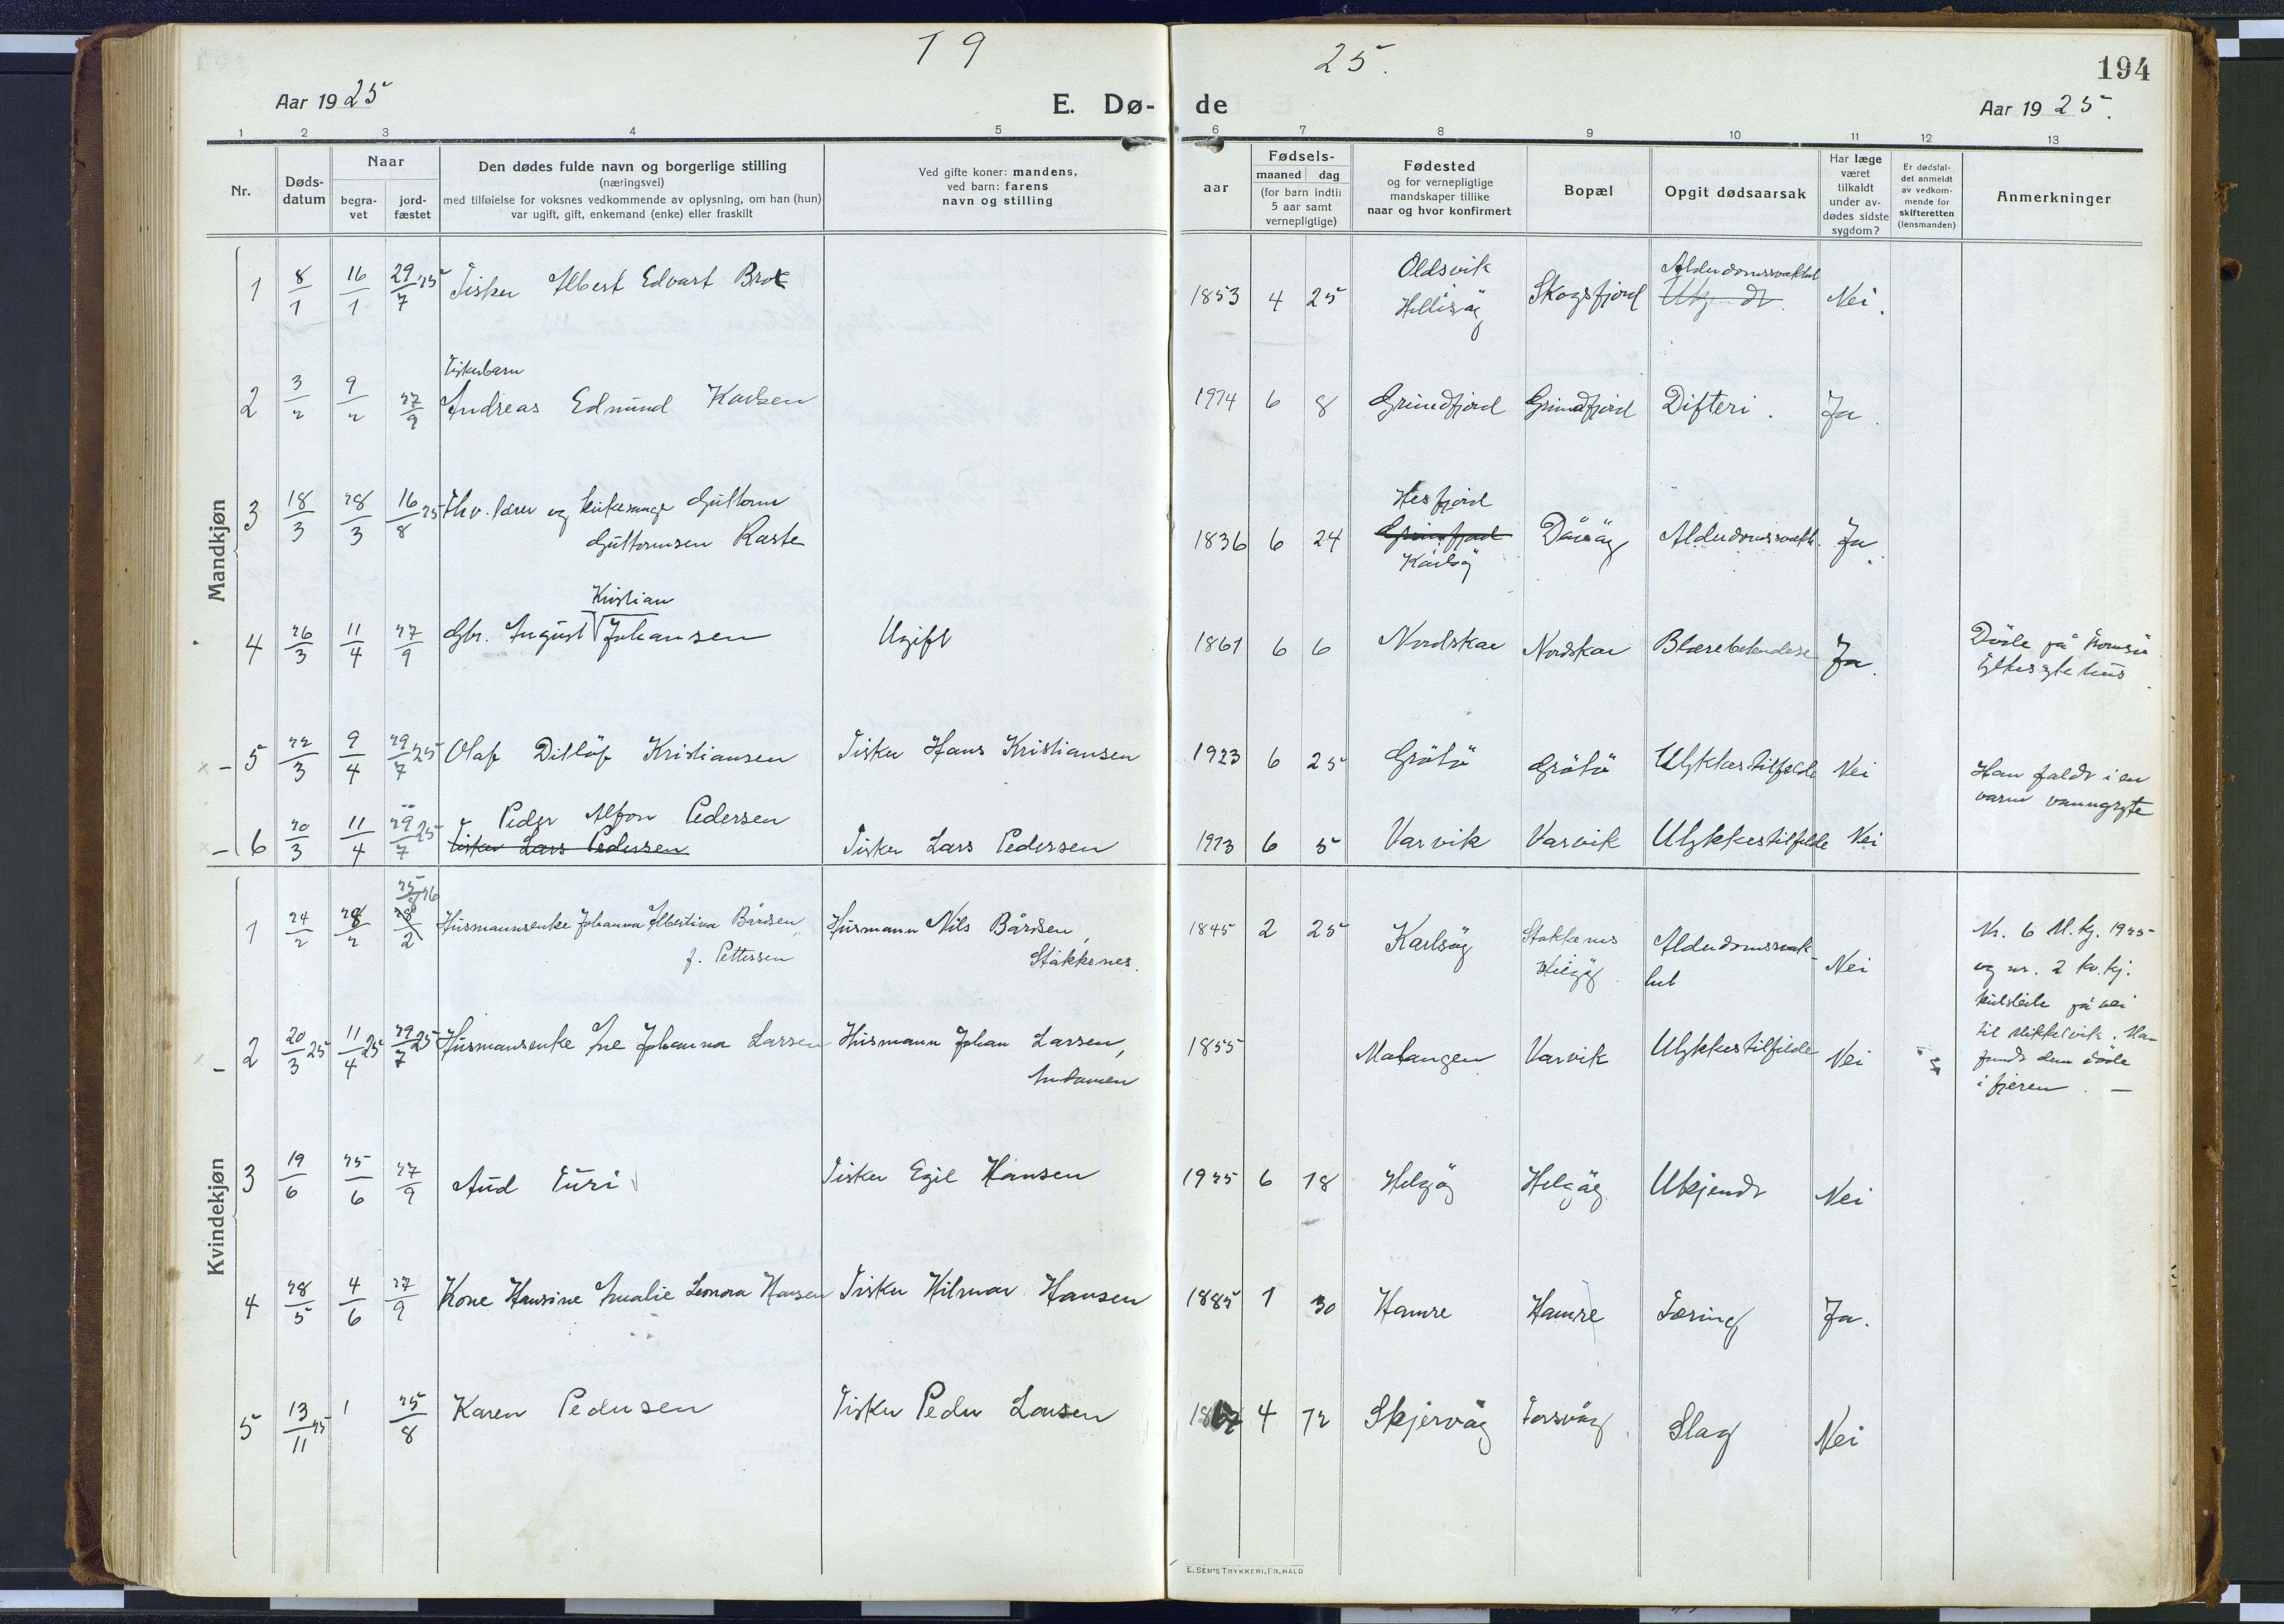 19 25.
194
Aar 1925 E. Dø- de Aar 1925.
1 2 3 4 5 6 7 8 9 10 11 12 13
Nr.
Døds-
datum
Naar
begra-
vet
jord-
fæstet
Den dødes fulde navn og borgerlige stilling
(næringsvei)
med tilføielse for voksnes vedkommende av oplysning, om han (hun)
var ugift, gift, enkemand (enke) eller fraskilt
Ved gifte koner: mandens,
ved barn: farens
navn og stilling
Fødsels-
aar
maaned dag
(for barn indtil
5 aar samt
vernepligtige)
Fødested
og for vernepligtige
mandskaper tillike
naar og hvor konfirmert
Bopæl
Opgit dødsaarsak
Har læge
været
tilkaldt
under av-
dødes sidste
sygdom?
Er dødsfal-
det anmeldt
av vedkom-
mende for
skifteretten
(lensmanden)
Anmerkninger
Mandkjøn
1 8/1 16/1 29/7 25 Fisker Albert Edvart Brox 1853 4 25 Oldsvik Helgøy Skogsfjord Alderdomssvakhet Ukjendt Nei.
2 3/2 9/2 27/9 Fiskerbarn
Andreas Edmund Karlsen 1914 6 8 Grundfjord Grundfjord Difteri. Ja.
3 18/3 28/3 16/8 25 Fhv. lærer og kirkesanger Guttorm
Guttormsen Raste 1836 6 24 Hesfjord Grundfjord Karlsøy Dåsøy Alderdomssvakh. Ja.
4 26/3 11/4 27/9 Gbr. August Kristian Johansen Ugift 1861 6 6 Nordskar Nordskar Blærebetendelse Ja. Døde på Tromsø
fylkessykehus.
5 22/3 9/4 29/7 25 Olaf Ditløf Kristiansen Fisker Hans Kristiansen 1923 6 25 Grøtø Grøtø Ulykkestilfelde Nei Han faldt i en
varm vanngryte
6 20/3 11/4 29/7 25 Peder Alfon Pedersen
Fisker Lars Pedersen Fisker Lars Pedersen 1923 6 5 Varvik Varvik Ulykkestilfelde Nei
Kvindekjøn
1 24/2 28/2 25/8 26 28/2 Husmannsenke Johanna Albertina Bårdsen
f. Pettersen Husmann Nils Bårdsen,
Stakkenes. 1845 2 25 Karlsøy Stakkenes Helgøy Alderdomssvak-
het Nei Nr. 6 M.kj. 1925
og nr. 2 kv.kj.
kulseilte på vei
til Mikkelvik. Man
fandt dem døde
i fjæren. —
2 20/3 25 11/4 25 29/7 25 Husmansenke Ane Johanna Larsen Husmann Johan Larsen, 1855 Malangen Varvik Ulykkestilfelde Nei
3 19/6 25/6 27/9 Aud Turi Fisker Egil Hansen 1925 6 18 Helgøy Helgøy Ukjendt Nei
4 28/5 4/6 27/9 Kone Hansine Amalie Leonora Hansen Fisker Hilmar Hansen 1885 1 30 Hamre Hamre Tæring Ja.
5 13/11 25 1 25/8 Karen Pedersen Fisker Peder Larsen 1867 4 12 Skjervøy Torsvåg Slag Nei
E. SEM'S TRYKKERI, FR.HALD